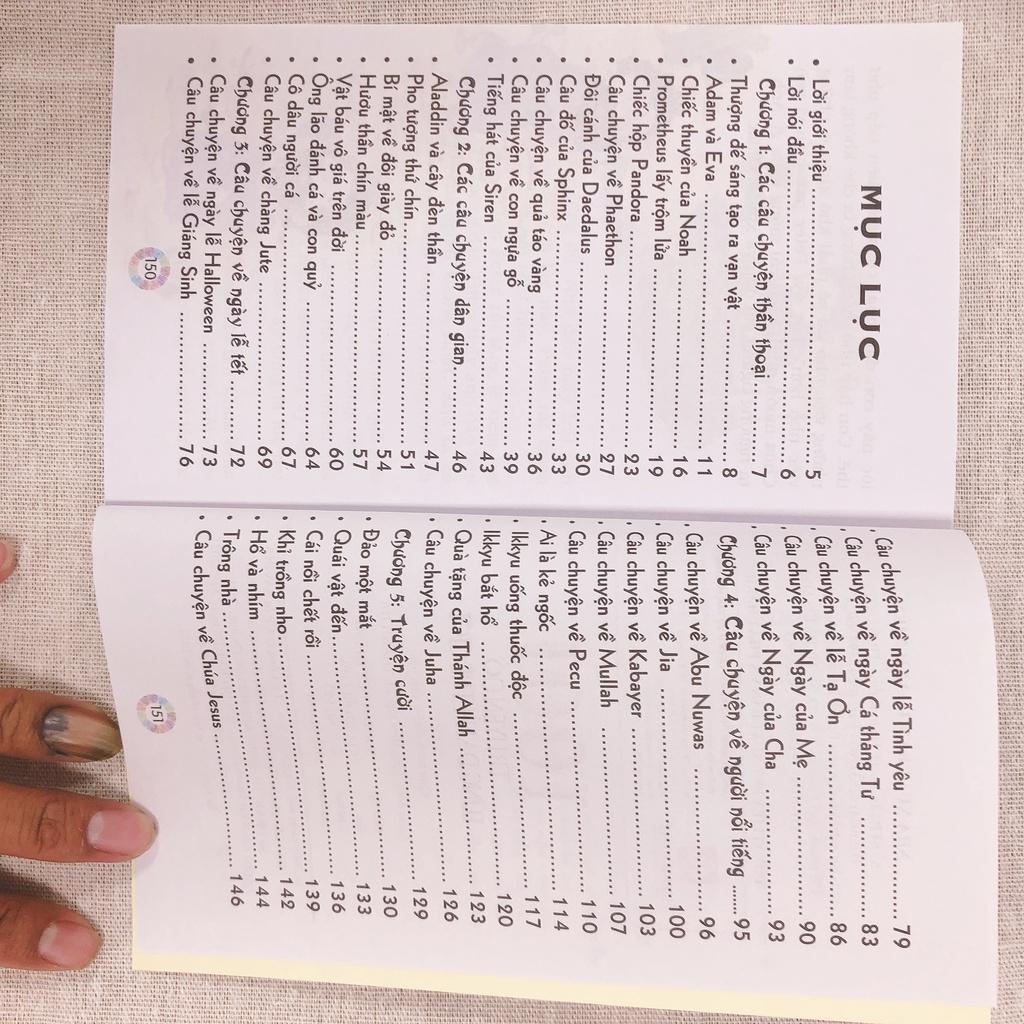 MỤC LỤC
• Lời giới thiệu ........ 5
• Lời nói đầu ........ 6
Chương 1: Các câu chuyện thần thoại ........ 7
• Thượng đế sáng tạo ra vạn vật ........ 8
• Adam và Eva ........ 11
• Chiếc thuyền của Noah ........ 16
• Prometheus lấy trộm lửa ........ 19
• Chiếc hộp Pandora ........ 23
• Câu chuyện về Phaethon ........ 27
• Đôi cánh của Daedalus ........ 30
• Câu đố của Sphinx ........ 33
• Câu chuyện về quả táo vàng ........ 36
• Câu chuyện về con ngựa gỗ ........ 39
• Tiếng hát của Siren ........ 43
Chương 2: Các câu chuyện dân gian ........ 46
• Aladdin và cây đèn thần ........ 47
• Pho tượng thứ chín ........ 51
• Bí mật về đôi giày đỏ ........ 54
• Hươu thần chín màu ........ 57
• Vật báu vô giá trên đời ........ 60
• Ông lão đánh cá và con quỷ ........ 64
• Cô dâu người cá ........ 67
• Câu chuyện về chàng Jute ........ 69
Chương 3: Câu chuyện về ngày lễ tết ........ 72
• Câu chuyện về ngày lễ Halloween ........ 73
• Câu chuyện về lễ Giáng Sinh ........ 76
150
• Câu chuyện về ngày lễ Tình yêu ........ 79
• Câu chuyện về ngày Cá tháng Tư ........ 83
• Câu chuyện về lễ Tạ Ơn ........ 86
• Câu chuyện về Ngày của Mẹ ........ 90
• Câu chuyện về Ngày của Cha ........ 93
Chương 4: Câu chuyện về người nổi tiếng ........ 95
• Câu chuyện về Abu Nuwas ........ 96
• Câu chuyện về Jia ........ 100
• Câu chuyện về Kabayer ........ 103
• Câu chuyện về Mullah ........ 107
• Câu chuyện về Pecu ........ 110
• Ai là kẻ ngốc ........ 114
• Ikkyu uống thuốc độc ........ 117
• Ikkyu bắt hổ ........ 120
• Quà tặng của Thánh Allah ........ 123
• Câu chuyện về Juha ........ 126
Chương 5: Truyện cười ........ 129
• Đảo một mắt ........ 130
• Quái vật đến ........ 133
• Cái nồi chết rồi ........ 136
• Khỉ trồng nho ........ 139
• Hổ và nhím ........ 142
• Trông nhà ........ 144
• Câu chuyện về Chúa Jesus ........ 146
151